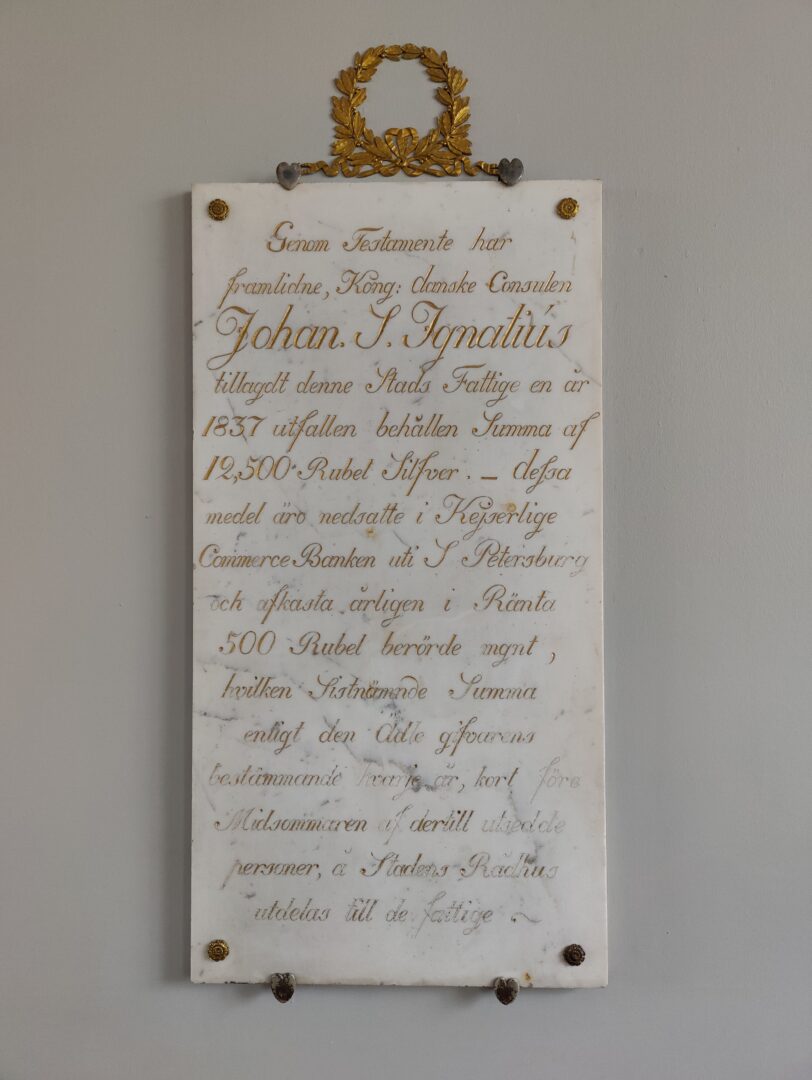 Genom Testamente har
framlidne, Kong: danske Consulen
Johan. S. Ignatius
tillagdt denne Stads Fattige en år
1837 utfallen behållen Summa af
12,500 Rubel Silfver. — dessa
medel äro nedsatte i Kejserlige
Commerce Banken uti S Petersburg
och afkasta årligen i Ränta
500 Rubel berörde mynt,
hvilken Sistnämnde Summa
enligt den Ädle gifvarens
bestämmande hvarje år, kort före
Midsommaren af dertill utsedde
personer, å Stadens Rådhus
utdelas till de fattige